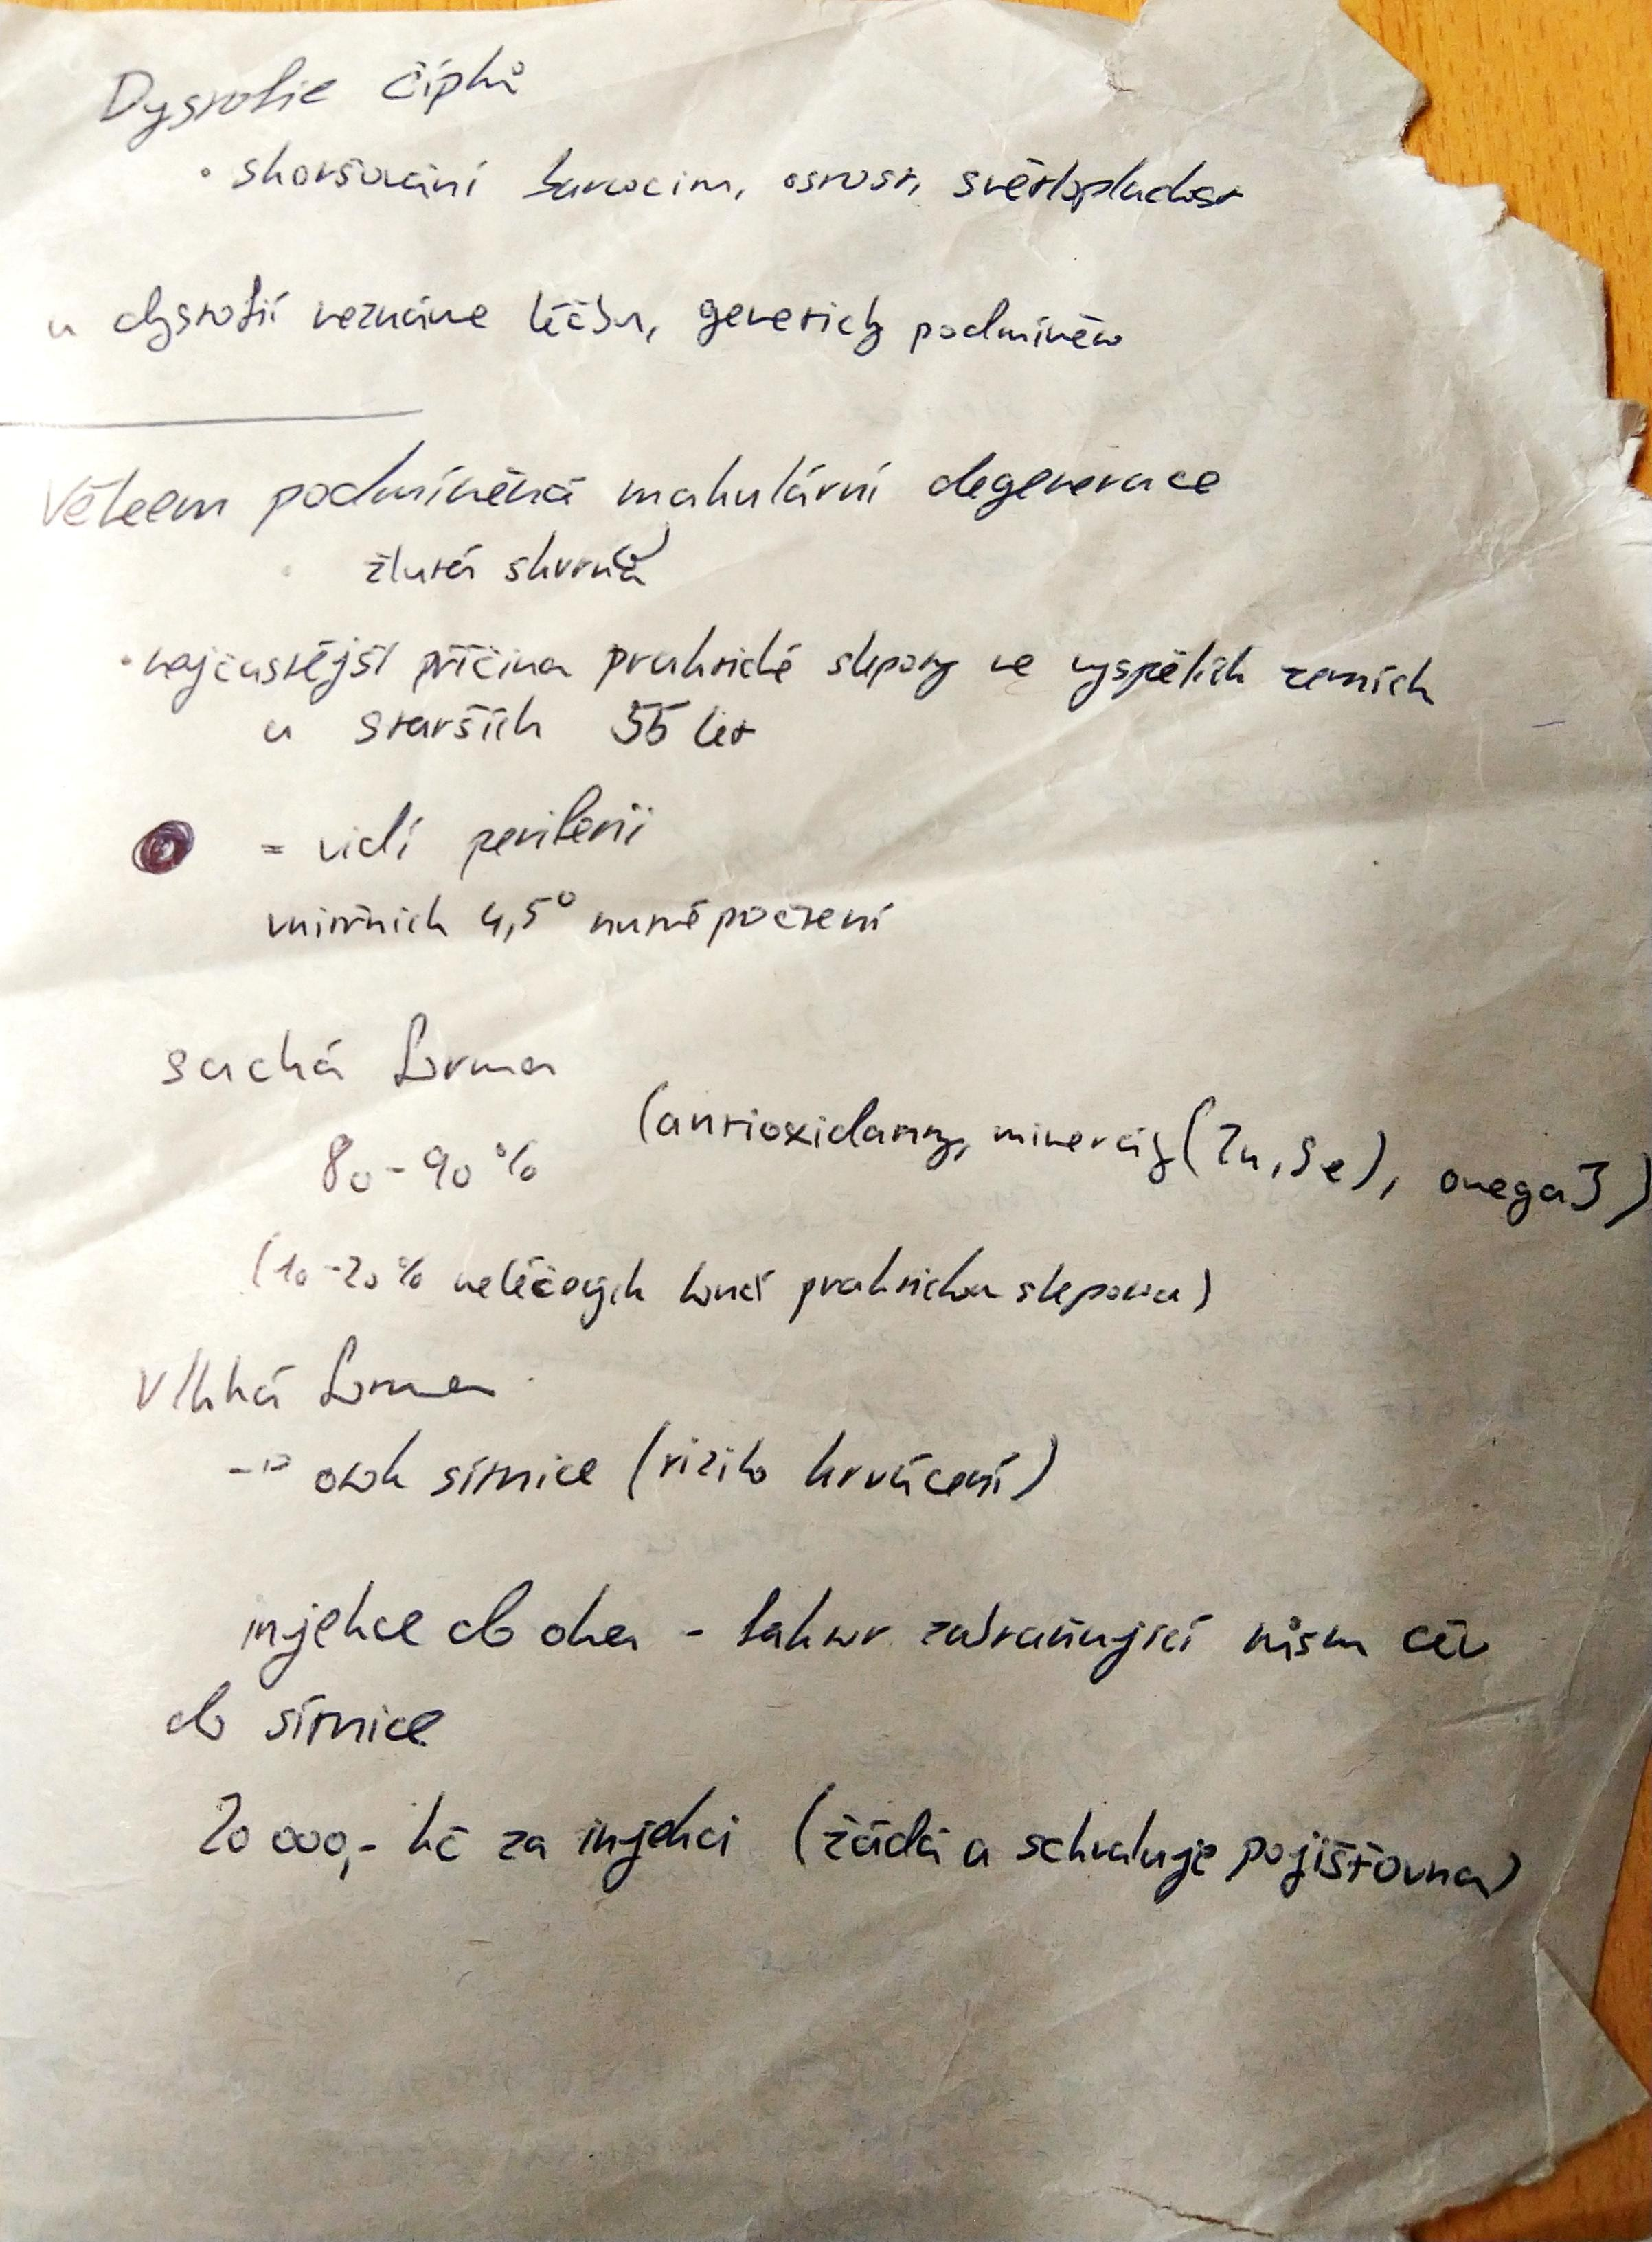 Dystrofie čípků
• zhoršování barvocitu, ostrost, světloplachost
u dystrofií neznáme léčbu, geneticky podmíněno
Věkem podmíněná makulární degenerace
žlutá skvrna
• nejčastější příčina praktické slepoty ve vyspělých zemích
u starších 55 let
= vidí periferii
vnitřních 4,5°
suchá forma
80-90 %
(antioxidanty, minerály (Zn, Se), omega 3)
(10-20 % neléčených končí praktickou slepotou)
Vlhká forma
→ otok sítnice (riziko krvácení)
injekce do oka - faktor zabraňující růstu cév
do sítnice
20 000,- kč za injekci (žádá a schvaluje pojišťovna)